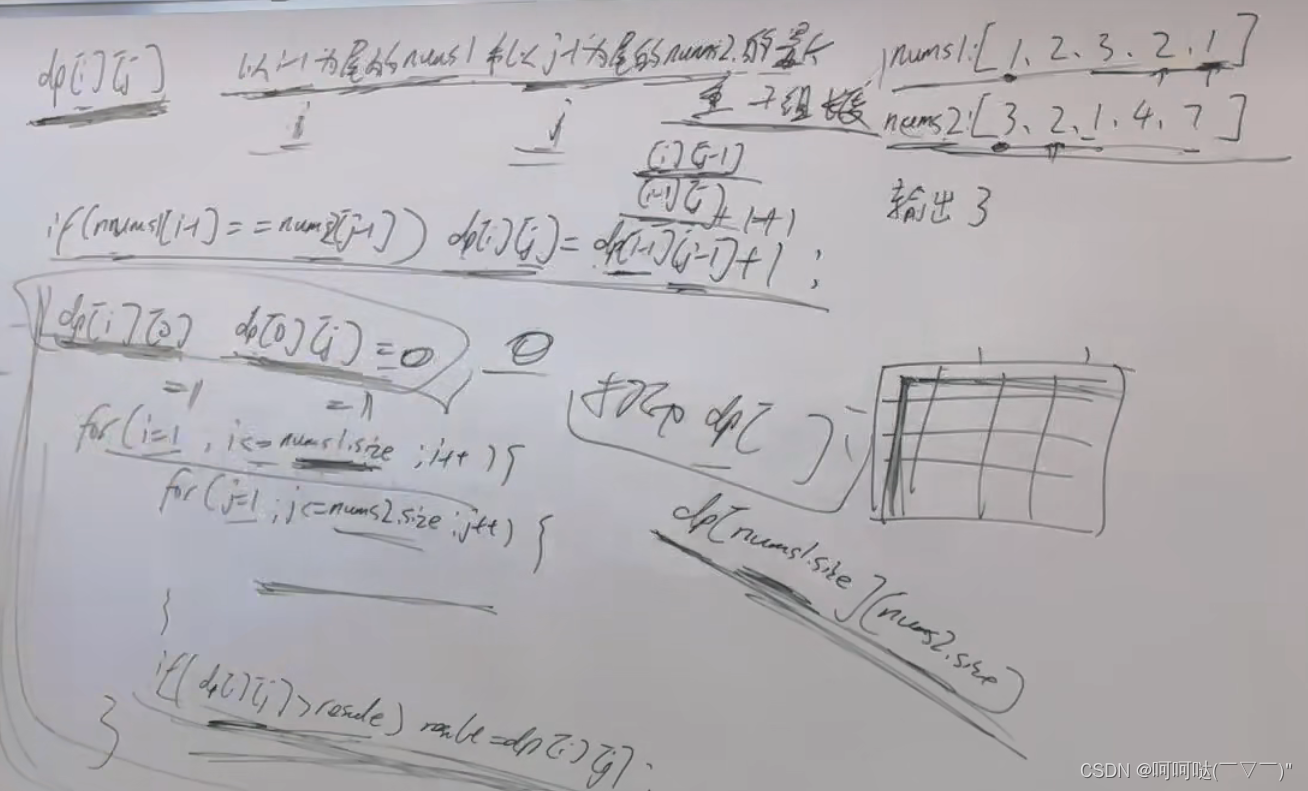 dp[i][j] 以i-1为尾的nums1和以j-1为尾的nums2.的最长
重复子组长度
i j
nums1:[1、2、3、2、1]
nums2:[3、2、1、4、7]
输出3
[i][j-1]
[i-1][j]+1+1
if(nums1[i-1]==nums2[j-1]) dp[i][j]=dp[i-1][j-1]+1;
dp[i][0] dp[0][j]=0 0
=1 =1
for(i=1, i<=nums1.size;i++){
for(j=1;j<=nums2.size;j++){
}
if(dp[i][j]>result) result=dp[i][j];
}
dp[ ]
dp[nums1.size][nums2.size]
CSDN @呵呵哒(￣▽￣)"